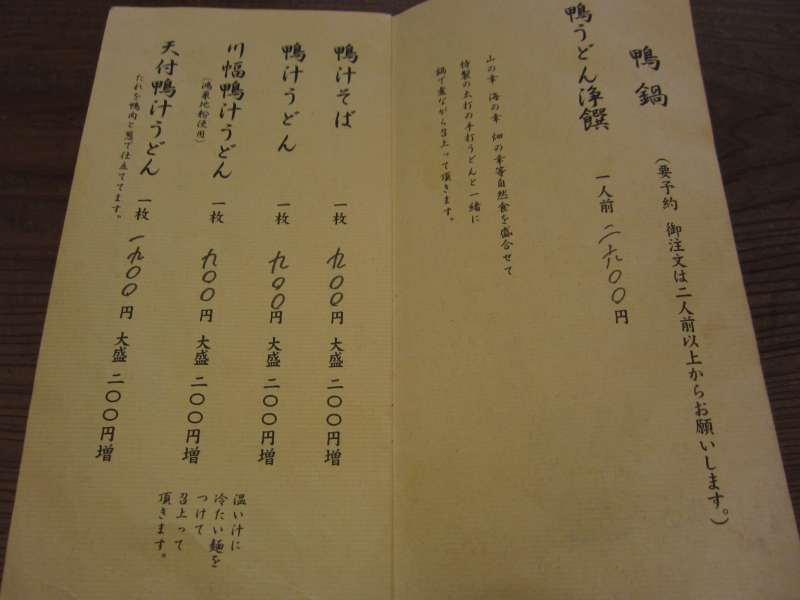 鴨鍋 （要予約 御注文は二人前以上からお願いします。）
鴨うどん浄饌 一人前 二九〇〇円
山の幸 海の幸 畑の幸等自然食を盛合せて
特製の太打の手打うどんと一緒に
鍋で煮ながら召上って頂きます。
鴨汁そば 一枚 九〇〇円 大盛 二〇〇円増
鴨汁うどん 一枚 九〇〇円 大盛 二〇〇円増
川幅鴨汁うどん 一枚 九〇〇円 大盛 二〇〇円増
（鴻巣地粉使用）
天付鴨汁うどん 一枚 一九〇〇円 大盛 二〇〇円増
たれを鴨肉と葱で仕立ててます。
温い汁に
冷たい麺を
つけて
召上って
頂きます。